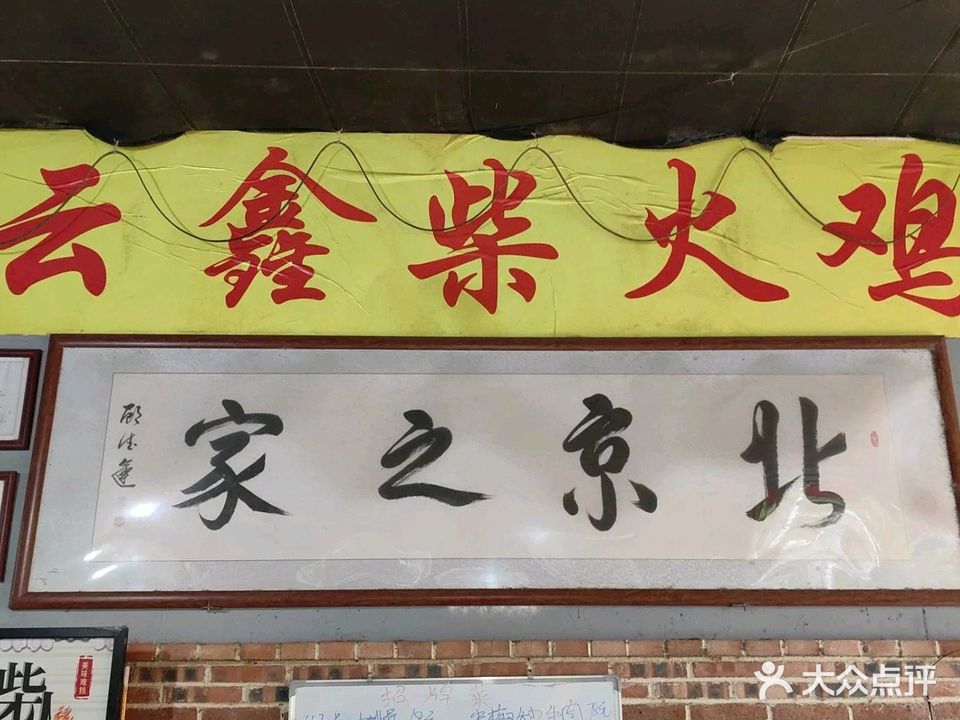 云鑫柴火鸡
北京之家
柴
美味难挡
招牌菜
大众点评